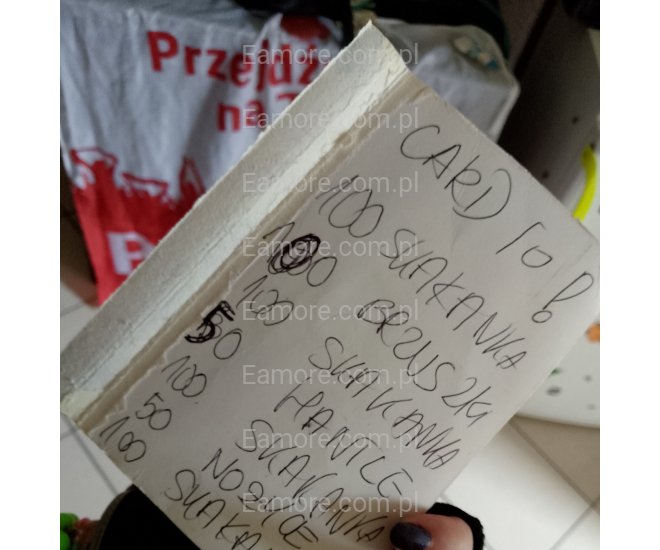 Przejdź
na
CARD 10 B
100 SKAKANKA
100 BRZUSZKI
100 SKAKANKA
50 HANTLE
100 SKAKANKA
50 NOŻYCE
100
Eamore.com.pl
Eamore.com.pl
Eamore.com.pl
Eamore.com.pl
Eamore.com.pl
Eamore.com.pl
Eamore.com.pl
Eamore.com.pl